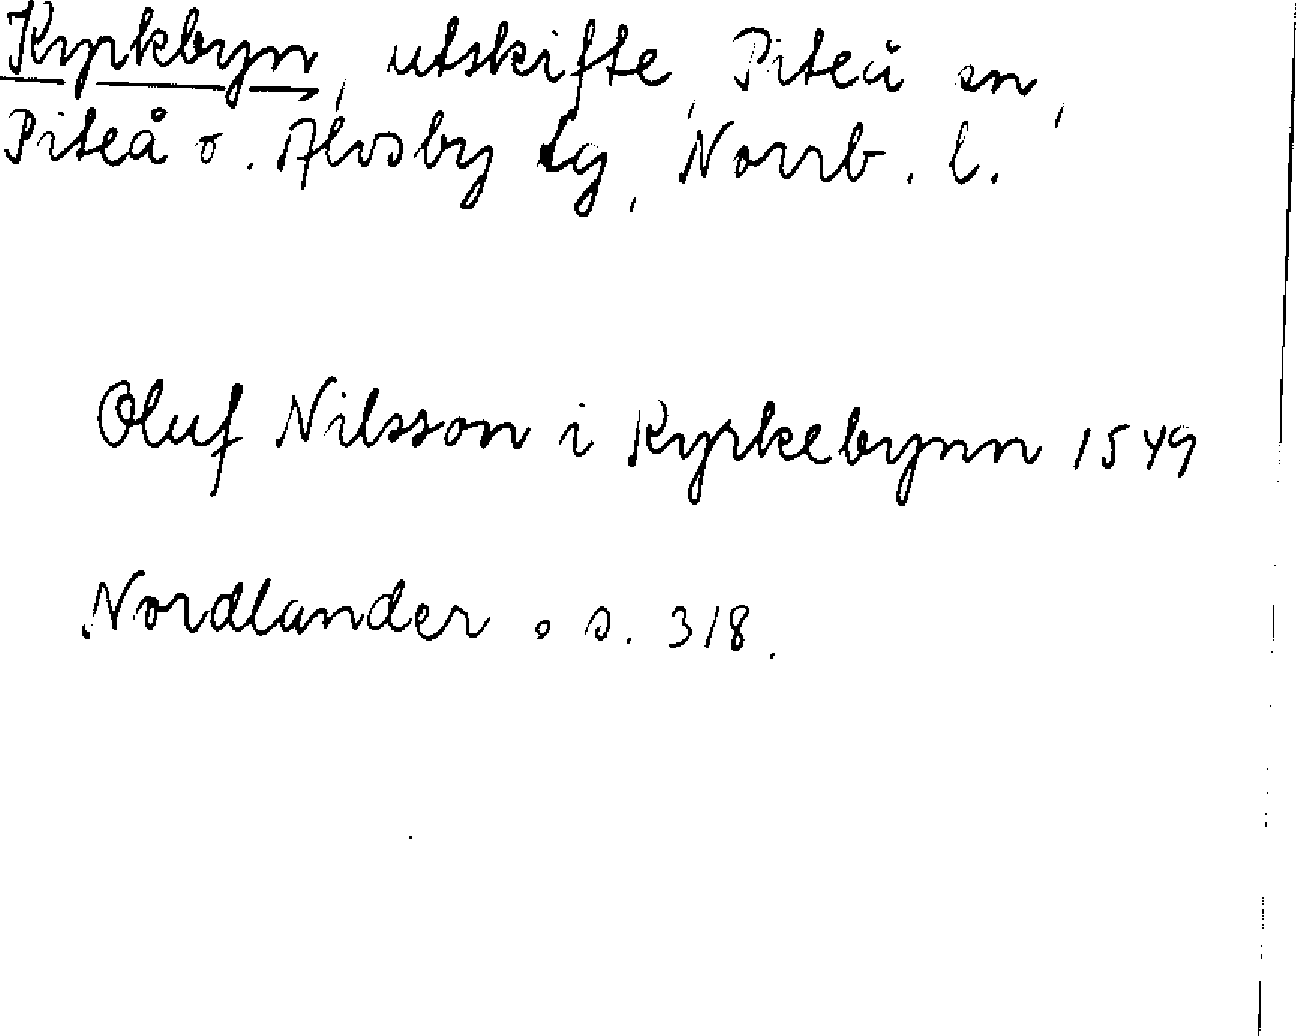 Kyrkbyn, utskifte, Piteå sn,
Piteå o. Älvsby tg, Norrb. l.
Oluf Nilsson i Kyrkebynn 1549
Nordlander. s. 318.